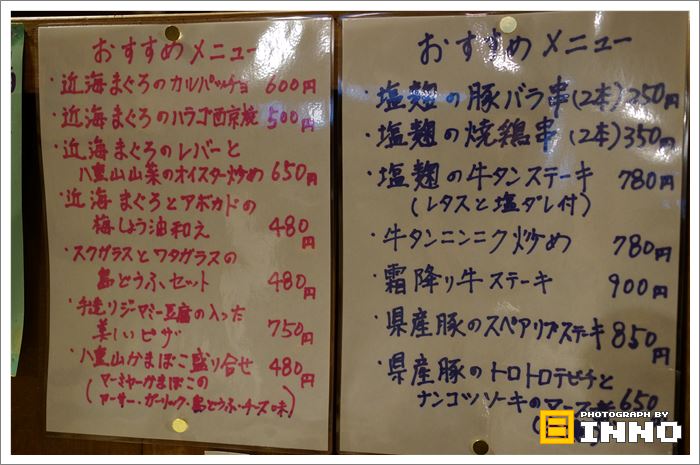 おすすめメニュー
・近海まぐろのカルパッチョ 600円
・近海まぐろのハラゴ西京焼 500円
・近海まぐろのレバーと
八重山山菜のオイスター炒め 650円
・近海まぐろとアボカドの
梅しょう油和え 480円
・スクガラスとワタガラスの
島どうふセット 480円
・手造りジーマミー豆腐の入った
美しいピザ 750円
・八重山かまぼこ盛り合せ 480円
(マーミヤかまぼこの
アーサー・ガーリック・島どうふ・チーズの味)
おすすめメニュー
・塩麹の豚バラ串(2本)250円
・塩麹の焼鶏串(2本)350円
・塩麹の牛タンステーキ 780円
(レタスと塩ダレ付)
・牛タンニンニク炒め 780円
・霜降り牛ステーキ 900円
・県産豚のスペアリブステーキ 850円
・県産豚のトロトロテビチと
ナンコツソーキの 650
PHOTOGRAPH BY
INNO